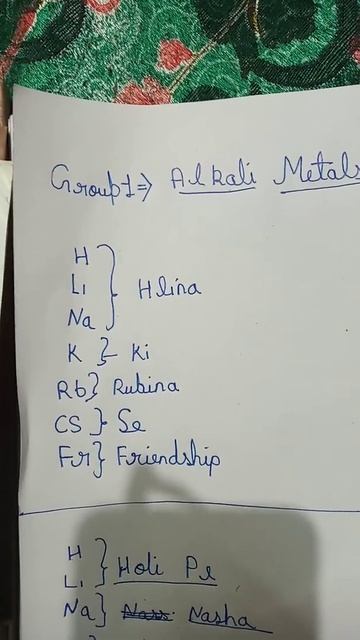 Group1⇒ Alkali Metals
H
Li
Na } Hlina
K } Ki
Rb } Rubina
CS } Se
Fr } Friendship
H
Li } Holi Pe
Na } Nasha